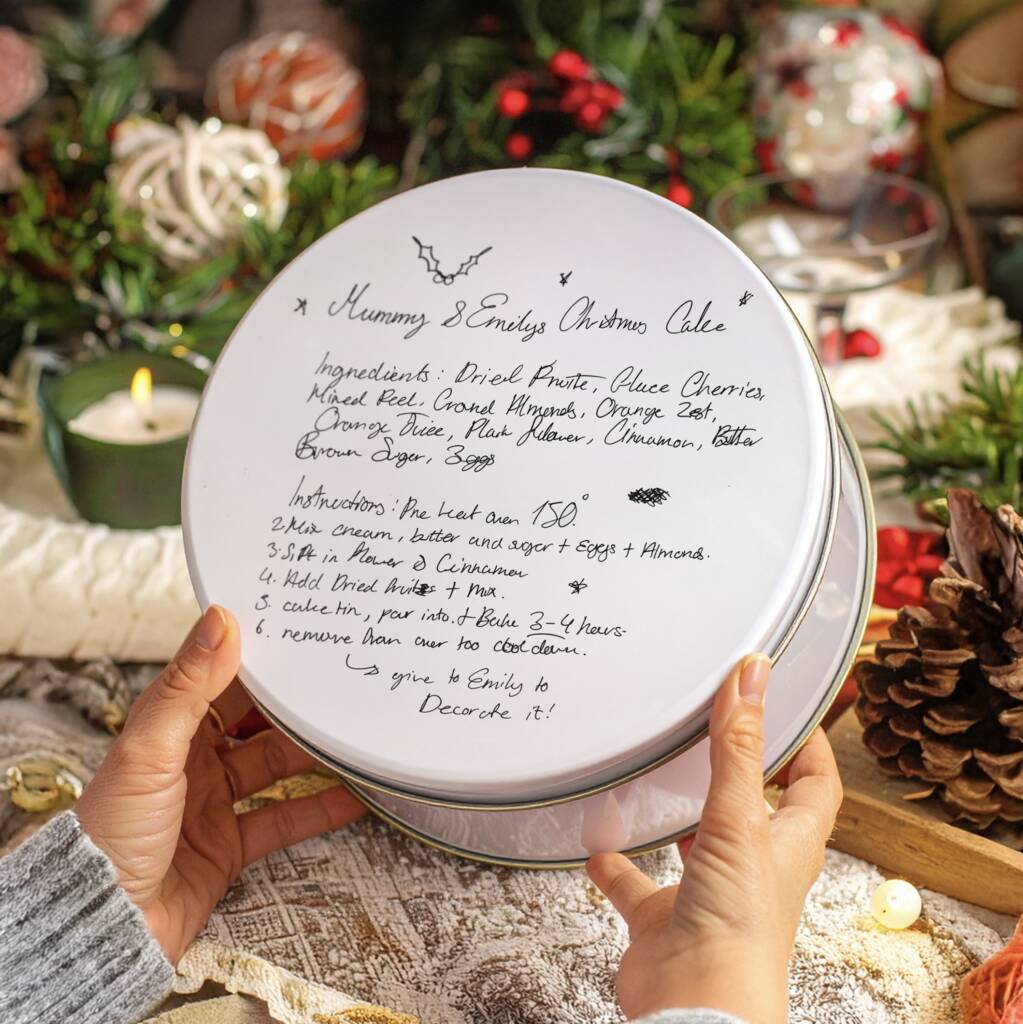 Mummy & Emilys Christmas Cake
Ingredients: Dried Fruite, Glace Cherries,
Mixed Peel, Ground Almonds, Orange Zest,
Orange Juice, Plain Flower, Cinnamon, Butter
Brown Sugar, 3 eggs
Instructions: Pre heat oven 150°
2. Mix cream, butter and sugar + Eggs + Almonds.
3. Sift in Flower & Cinnamon
4. Add Dried fruites + mix.
5. cake tin, pour into. + Bake 3-4 hours.
6. remove from over too cool down.
give to Emily to
Decorate it!